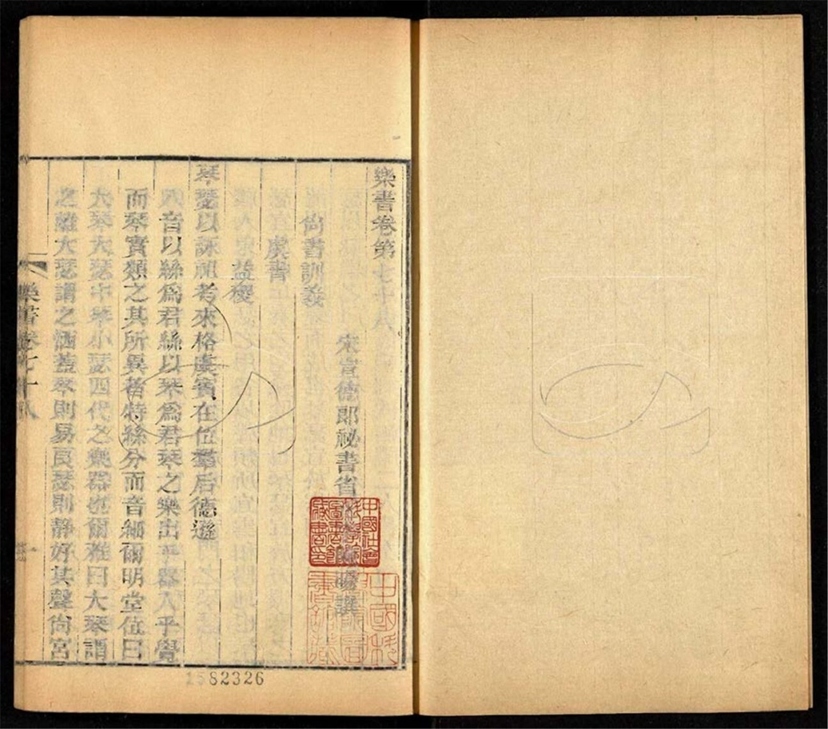 樂書卷第七十八
宋宣德郎祕書省
撰
尚書訓義
虞書
益稷
琴瑟以詠祖考來格虞賓在位羣后德讓
八音以絲爲君絲以琴爲君琴之樂出乎器入乎覺
而琴實類之其所異者特絲分而音細爾明堂位曰
大琴大瑟中琴小瑟四代之樂器也爾雅曰大琴謂
之離大瑟謂之灑蓋琴則易良瑟則靜好其聲尚宮
樂書卷七十八
1582326